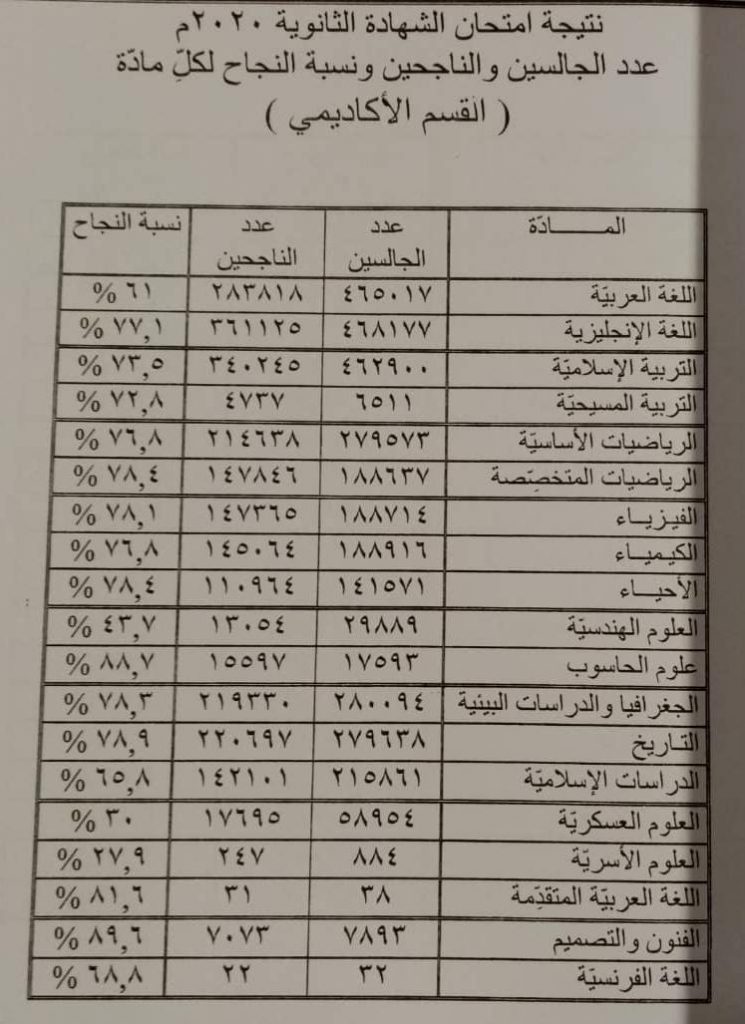 نتيجة امتحان الشهادة الثانوية ٢٠٢٠م
عدد الجالسين والناجحين ونسبة النجاح لكلّ مادّة
( القسم الأكاديمي )
المـــــادّة عدد الجالسين عدد الناجحين نسبة النجاح
اللغة العربيّة ٤٦٥٠١٧ ٢٨٣٨١٨ ٦١ %
اللغة الإنجليزية ٤٦٨١٧٧ ٣٦١١٢٥ ٧٧,١ %
التربية الإسلاميّة ٤٦٢٩٠٠ ٣٤٠٢٤٥ ٧٣,٥ %
التربية المسيحيّة ٦٥١١ ٤٧٣٧ ٧٢,٨ %
الرياضيات الأساسيّة ٢٧٩٥٧٣ ٢١٤٦٣٨ ٧٦,٨ %
الرياضيات المتخصّصة ١٨٨٦٣٧ ١٤٧٨٤٦ ٧٨,٤ %
الفيزيـاء ١٨٨٧١٤ ١٤٧٣٦٥ ٧٨,١ %
الكيميـاء ١٨٨٩١٦ ١٤٥٠٦٤ ٧٦,٨ %
الأحيـــاء ١٤١٥٧١ ١١٠٩٦٤ ٧٨,٤ %
العلوم الهندسيّة ٢٩٨٨٩ ١٣٠٥٤ ٤٣,٧ %
علوم الحاسوب ١٧٥٩٣ ١٥٥٩٧ ٨٨,٧ %
الجغرافيا والدراسات البيئية ٢٨٠٠٩٤ ٢١٩٣٣٠ ٧٨,٣ %
التاريخ ٢٧٩٦٣٨ ٢٢٠٦٩٧ ٧٨,٩ %
الدراسات الإسلاميّة ٢١٥٨٦١ ١٤٢١٠١ ٦٥,٨ %
العلوم العسكريّة ٥٨٩٥٤ ١٧٦٩٥ ٣٠ %
العلوم الأسريّة ٨٨٤ ٢٤٧ ٢٧,٩ %
اللغة العربيّة المتقدّمة ٣٨ ٣١ ٨١,٦ %
الفنون والتصميم ٧٨٩٣ ٧٠٧٣ ٨٩,٦ %
اللغة الفرنسيّة ٣٢ ٢٢ ٦٨,٨ %